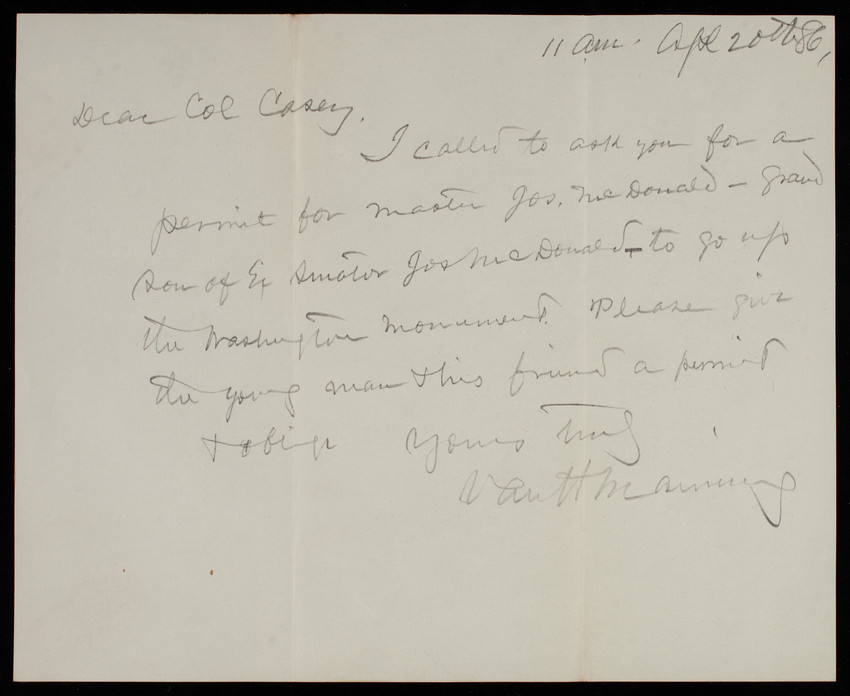 11 am. Apl 20th 86,
Dear Col Casey.
I called to ask you for a
permit for master Jos. McDonald – grand
son of Ex Senator Jos McDonald – to go up
the Washington Monument. Please give
the young man & his friend a permit
& oblige Yours Truly
Van H Manning